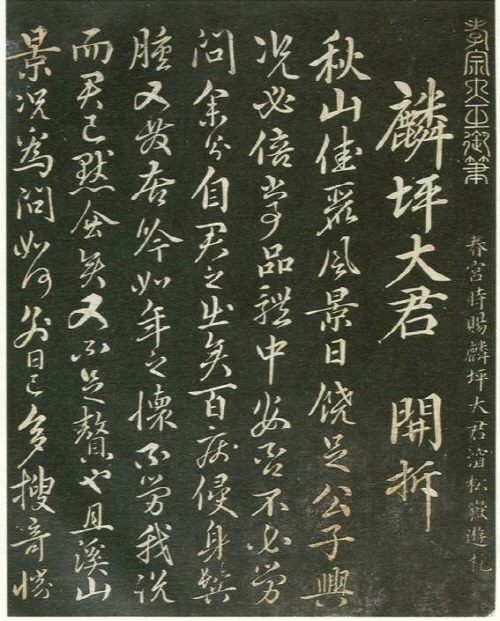 孝宗大王御筆
春宮時賜麟坪大君㴊松嶽遊札
麟坪大君 開拆
秋山佳麗風景日饒足公子興
況必倍常品體中安否不必勞
問余分自君之出矣百病侵身
腫又發吝吟如年之懷不勞我說
而君已默會矣又不足贅也且溪山
景況為問如何若日已多搜奇勝